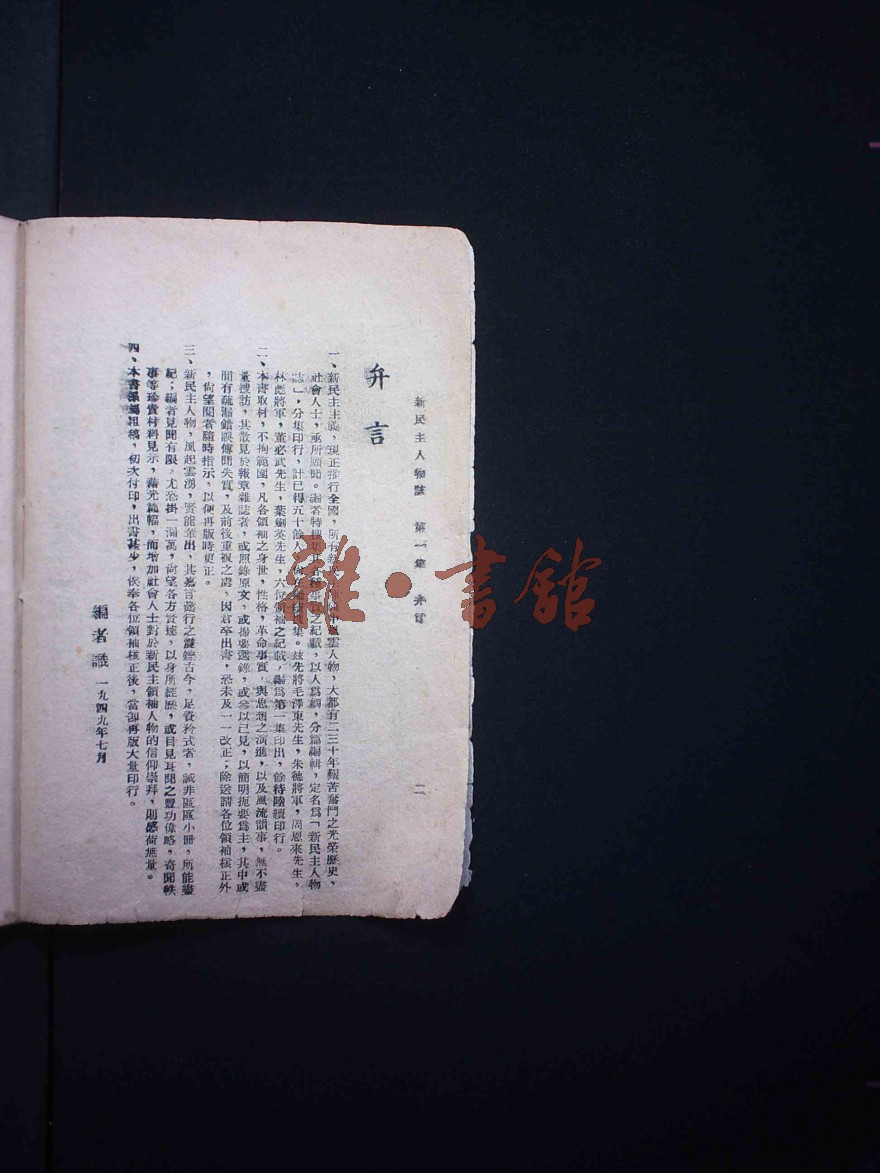 新民主人物誌 第一集 弁言
二
弁言
一、新民主主義，現正推行全國，所有新雲人物，大都有二三十年艱苦奮鬥之光榮歷史，
社會人士，亟所願聞。編者特搜集之記載，以人爲綱，分篇編輯，定名爲「新民主人物
誌」，分集印行，計已得五十餘人，集。茲先將毛澤東先生，朱德將軍，周恩來先生，
林彪將軍，董必武先生，葉劍英先生，六位領袖之記載，編爲第一集印出，餘待陸續印行。
二、本書取材，不拘範圍，凡各領袖之身世，性格，革命事實，與思想之演進，以及風流韻事，無不盡
量搜訪，其散見於報章雜誌者，或照錄原文，或摘要選錄，或參以己見，以簡明扼要爲主，其中或
間有疏漏錯誤傳聞失實，及前後重複之處，因倉卒出書，恐未及一一改正；除送請各位領袖核正外
，尙望閱者隨時指示，以便再版時更正。
三、新民主人物，風起雲湧，賢能輩出，其嘉言懿行之震鑠古今，足資矜式者，誠非區區小冊，所能盡
紀；編者見聞有限，尤恐掛一漏萬，尙望各方賢達，以身所經歷，或目見耳聞之豐功偉略，奇聞軼
事等珍貴材料見示，藉光篇幅，而增加社會人士對於新民主領袖人物的信仰崇拜，則感荷無量。
四、本書係屬初稿，初次付印，出書甚少，俟奉各位領袖核正後，當卽再版大量印行。
編者識 一九四九年七月
雜·書舘